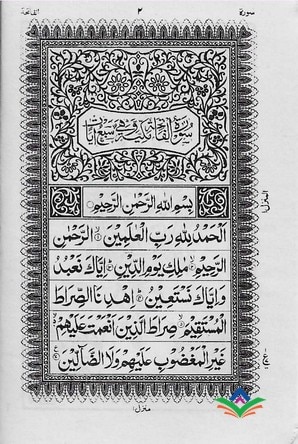 سورة ٢ الفاتحة
سورة الفاتحة مكية وهي سبع آيات
بِسْمِ اللهِ الرَّحْمٰنِ الرَّحِيْمِ
اَلْحَمْدُ لِلّٰهِ رَبِّ الْعٰلَمِيْنَ ۙ الرَّحْمٰنِ
الرَّحِيْمِ ۙ مٰلِكِ يَوْمِ الدِّيْنِ ؕ اِيَّاكَ نَعْبُدُ
وَاِيَّاكَ نَسْتَعِيْنُ ؕ اِهْدِنَا الصِّرَاطَ
الْمُسْتَقِيْمَ ۙ صِرَاطَ الَّذِيْنَ اَنْعَمْتَ عَلَيْهِمْ
غَيْرِ الْمَغْضُوْبِ عَلَيْهِمْ وَلَا الضَّآلِّيْنَ
منزل ١